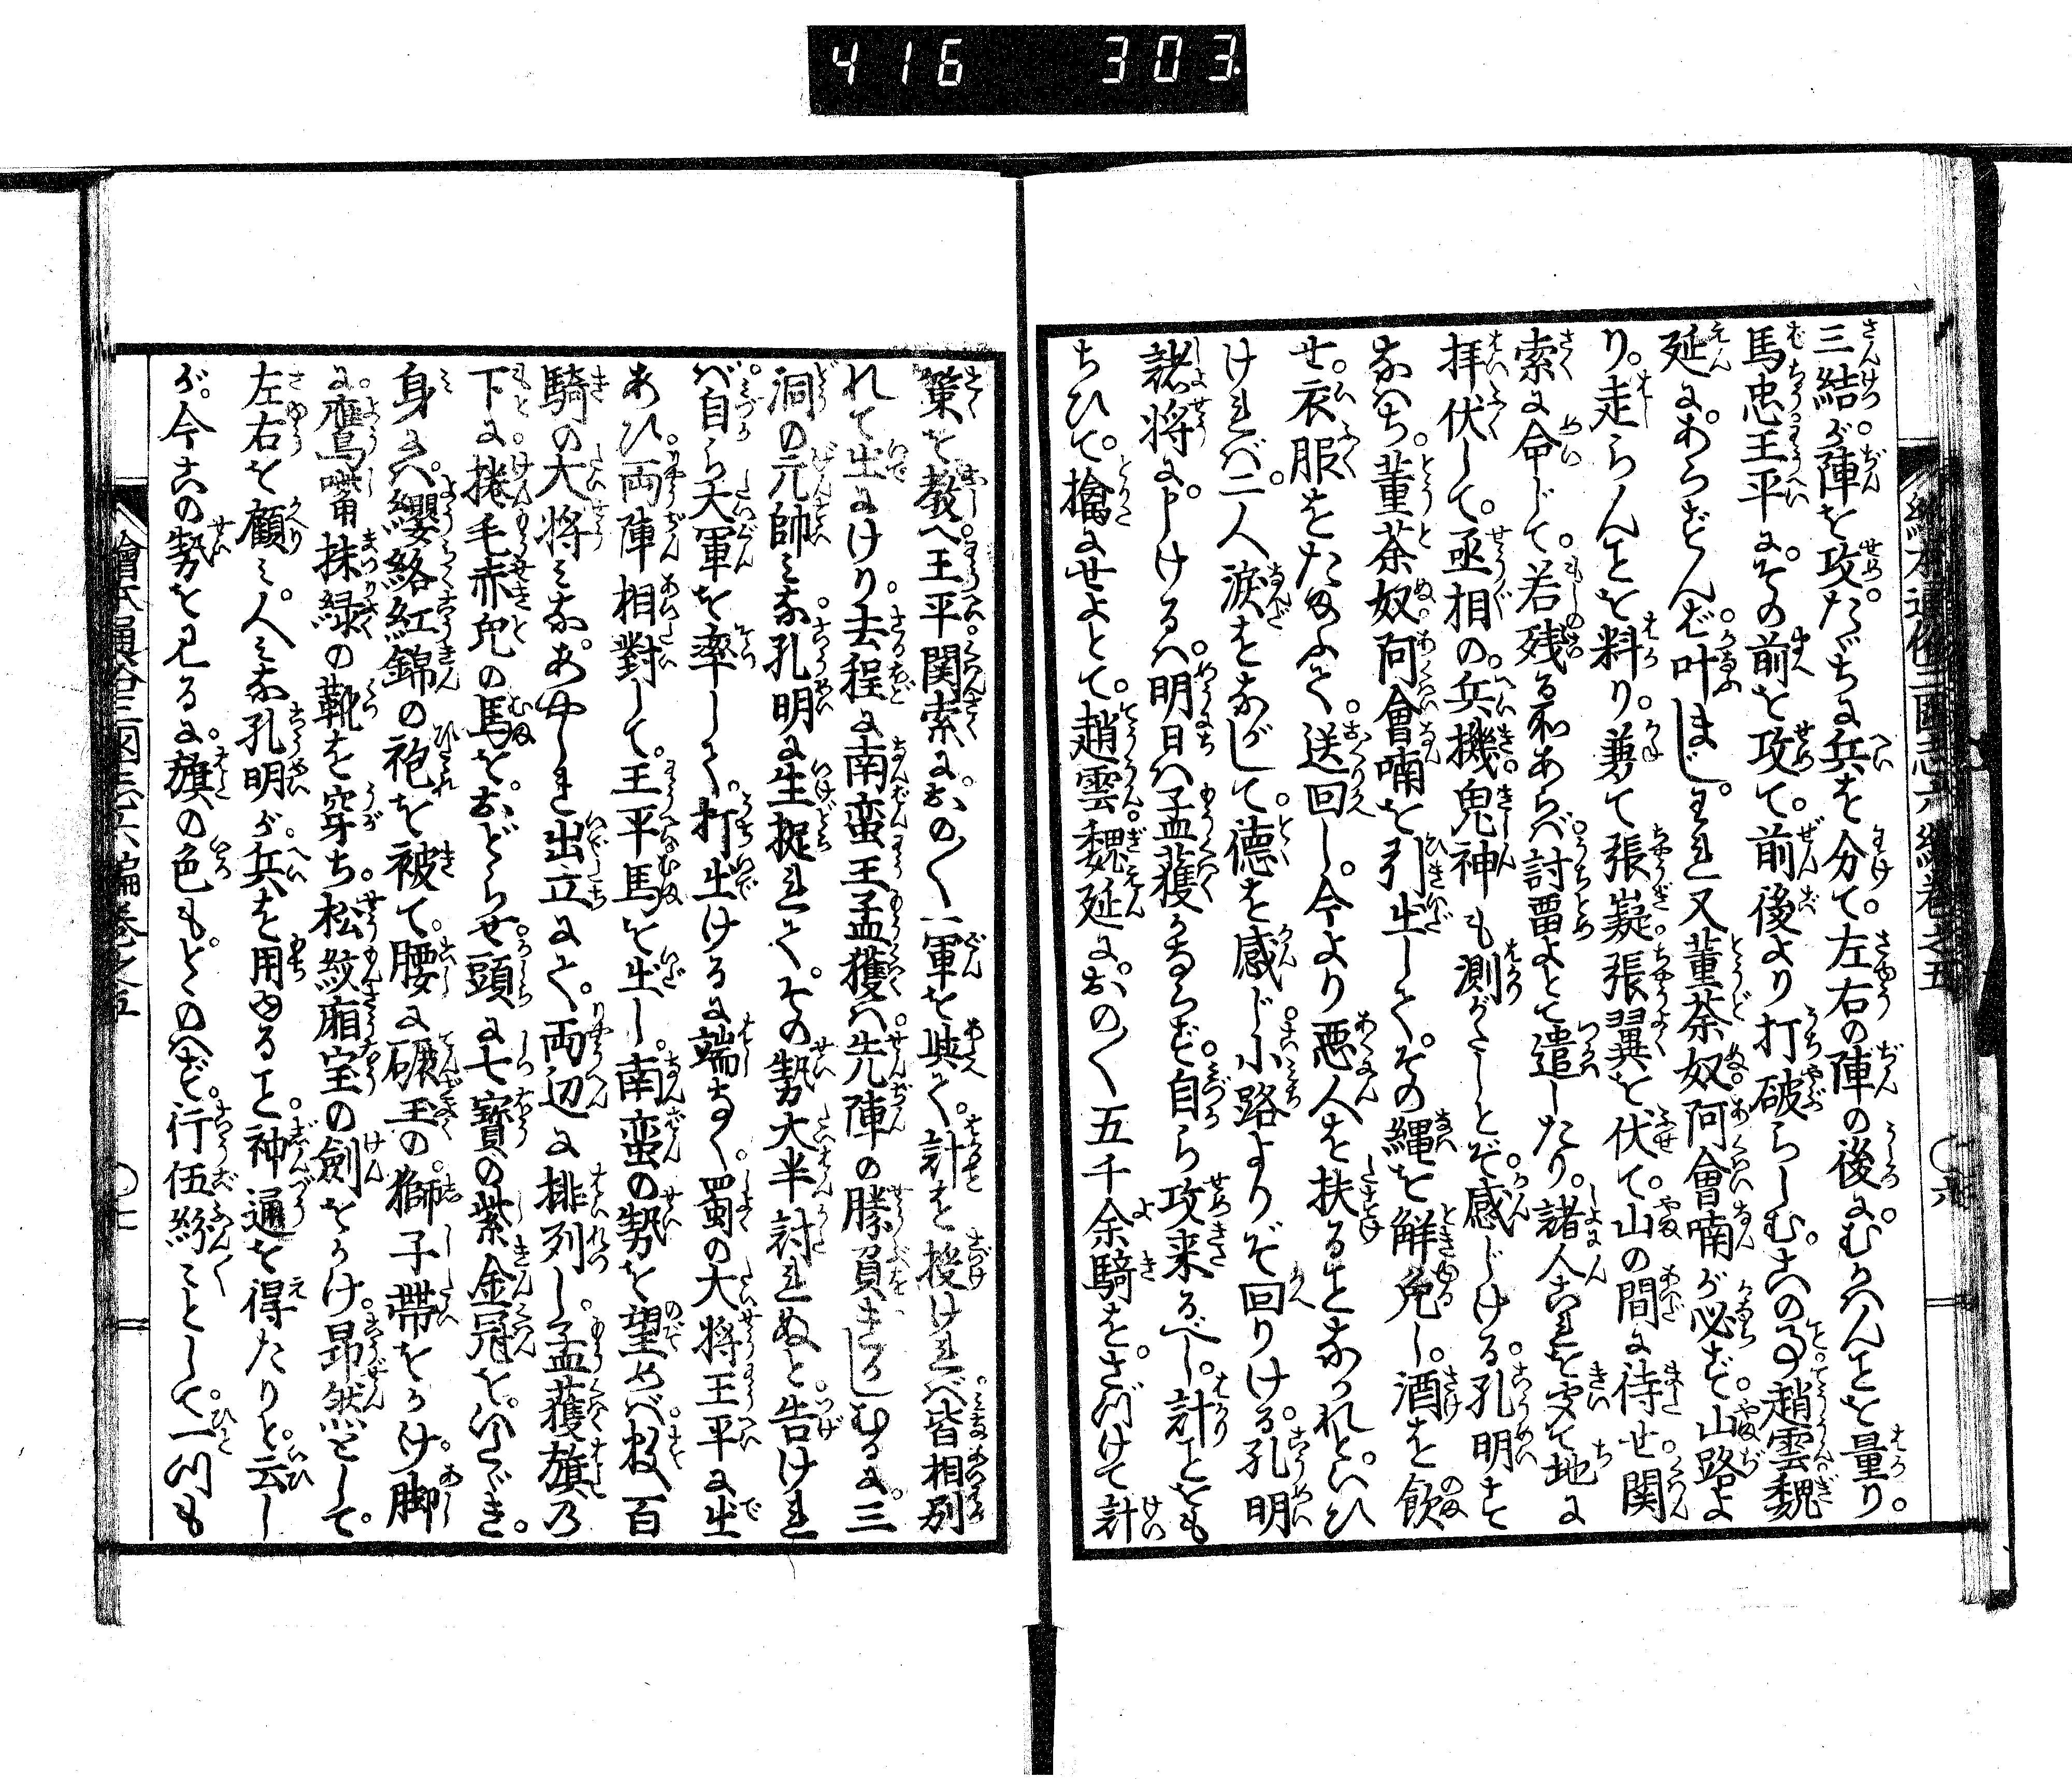 416 303
繪本通俗三國志六編卷之五
三結が陣を攻たゞちに兵を分て。左右の陣の後に。むかへんことを量り。
馬忠王平に。その前を攻て。前後より打破らしむ。この事趙雲魏
延に。あらざんば叶まじ。われ又董荼奴。阿會喃が必ず。山路よ
り。走らんことを料り。兼て張嶷。張翼を伏て。山の間に待せ。関
索に命じて。若残る和あらば。討畱よとて遣したり。諸人これを聞て地に
拝伏して。丞相の。兵機。鬼神も測がたしとぞ。感じける。孔明す
なはち。董荼奴。阿會喃を引出して。その縄を解免し。酒を飲
せ。衣服をたまふて。送回し。今より悪人を扶ることなかれといひ
ければ。二人淚をながして。德を感じ小路よりぞ回りける。孔明
諸将に申けるは。明日は孟獲かならず。自ら攻来るべし。計ことをも
ちひて。擒にせよとて。趙雲。魏延に。おの〳〵五千余騎を。さづけて計
策を敎へ。王平。関索に。おの〳〵一軍を與て。計を授ければ。皆相別
れて出にけり。去程に南蛮王。孟獲は。先陣の勝負をまちしむるに。三
洞の元帥みな。孔明に生捉れて。その勢大半討れぬと。告けれ
ば。自ら大軍を率して。打出けるに端なく。蜀の大将王平に出
あひ。両陣相對して。王平馬を出し。南蛮の勢を望めば。数百
騎の大将みな。あやしき出立にて。両辺に排列し。孟獲旗の
下に。捲毛赤兎の馬を。おどらせ。頭に七寳の紫金冠を。いたゞき。
身には。纓絡紅錦の袍を被て。腰に碾玉の。獅子帶をかけ。脚
に。鷹嘴抹緑の靴を穿ち。松紋廂宝の劍をかけ。昂然として。
左右を顧み。人みな孔明が。兵を用ゆること。神通を得たりと。云し
が。今この勢を見るに。旗の色も。とゝのへず。行伍紛〻として。一つも
繪本通俗三國志六編卷之五